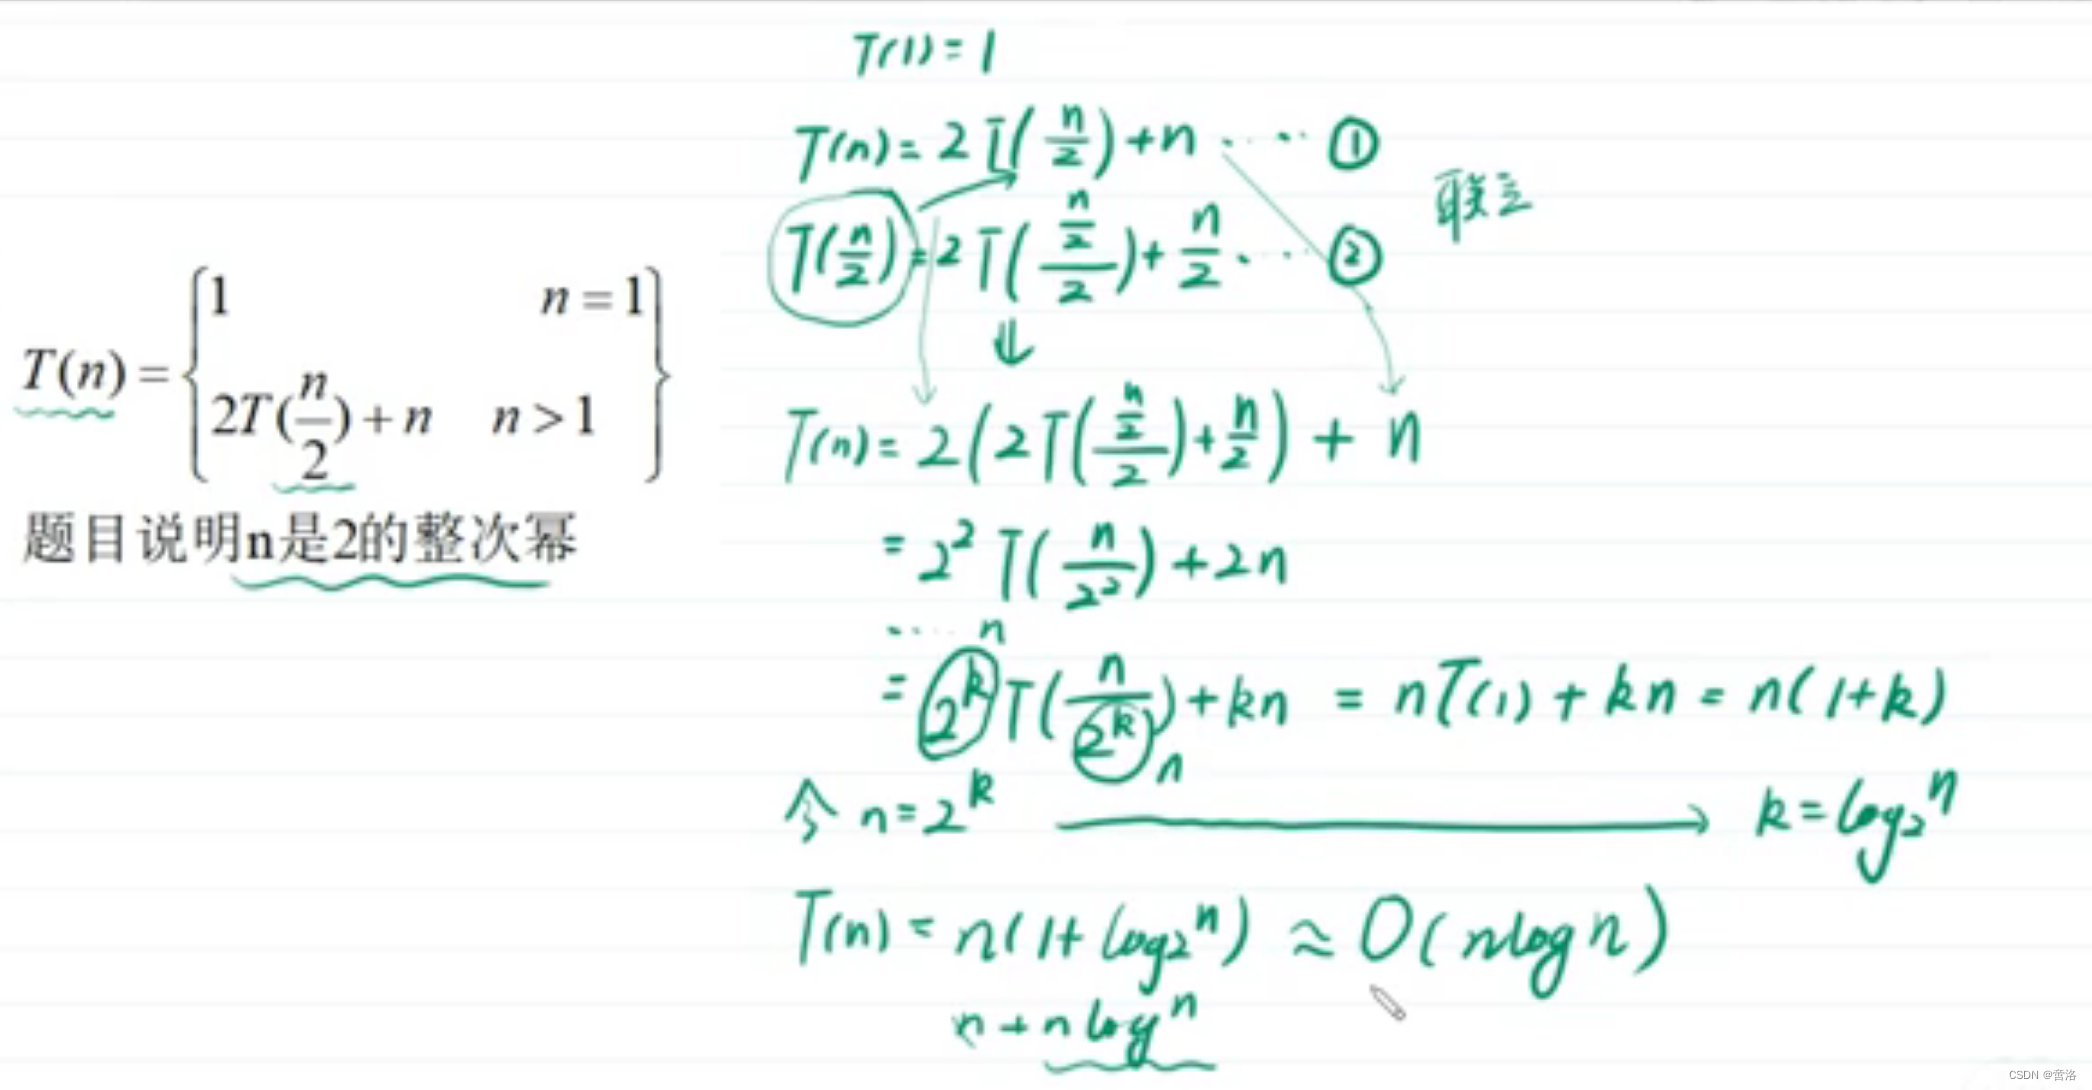 T(n) = { 1    n = 1
2T(n/2) + n    n > 1 }
题目说明n是2的整次幂
T(1) = 1
T(n) = 2T(n/2) + n ····· ①
T(n/2) = 2T((n/2)/2) + n/2 ····· ②
联立
⇓
T(n) = 2(2T((n/2)/2) + n/2) + n
= 2² T(n/2²) + 2n
····· n
= 2^k T(n/2^k) + kn = nT(1) + kn = n(1+k)
n
令 n = 2^k → k = log₂ⁿ
T(n) = n(1 + log₂ⁿ) ≈ O(nlogn)
n + nlogⁿ
CSDN @啬洛